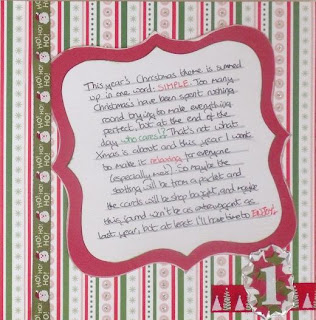 This year's Christmas theme is summed
up in one word: SIMPLE. Too many
Christmas's have been spent rushing
round trying to make everything
perfect, but at the end of the
day who cares!? That's not what
Xmas is about and this year I want
to make it relaxing for everyone
(especially me!) So maybe the
will be from a packet and
the cards will be shop bought, and maybe
this found won't be as extravagant as
last year, but at least I'll have time to
HO! HO! HO!
1